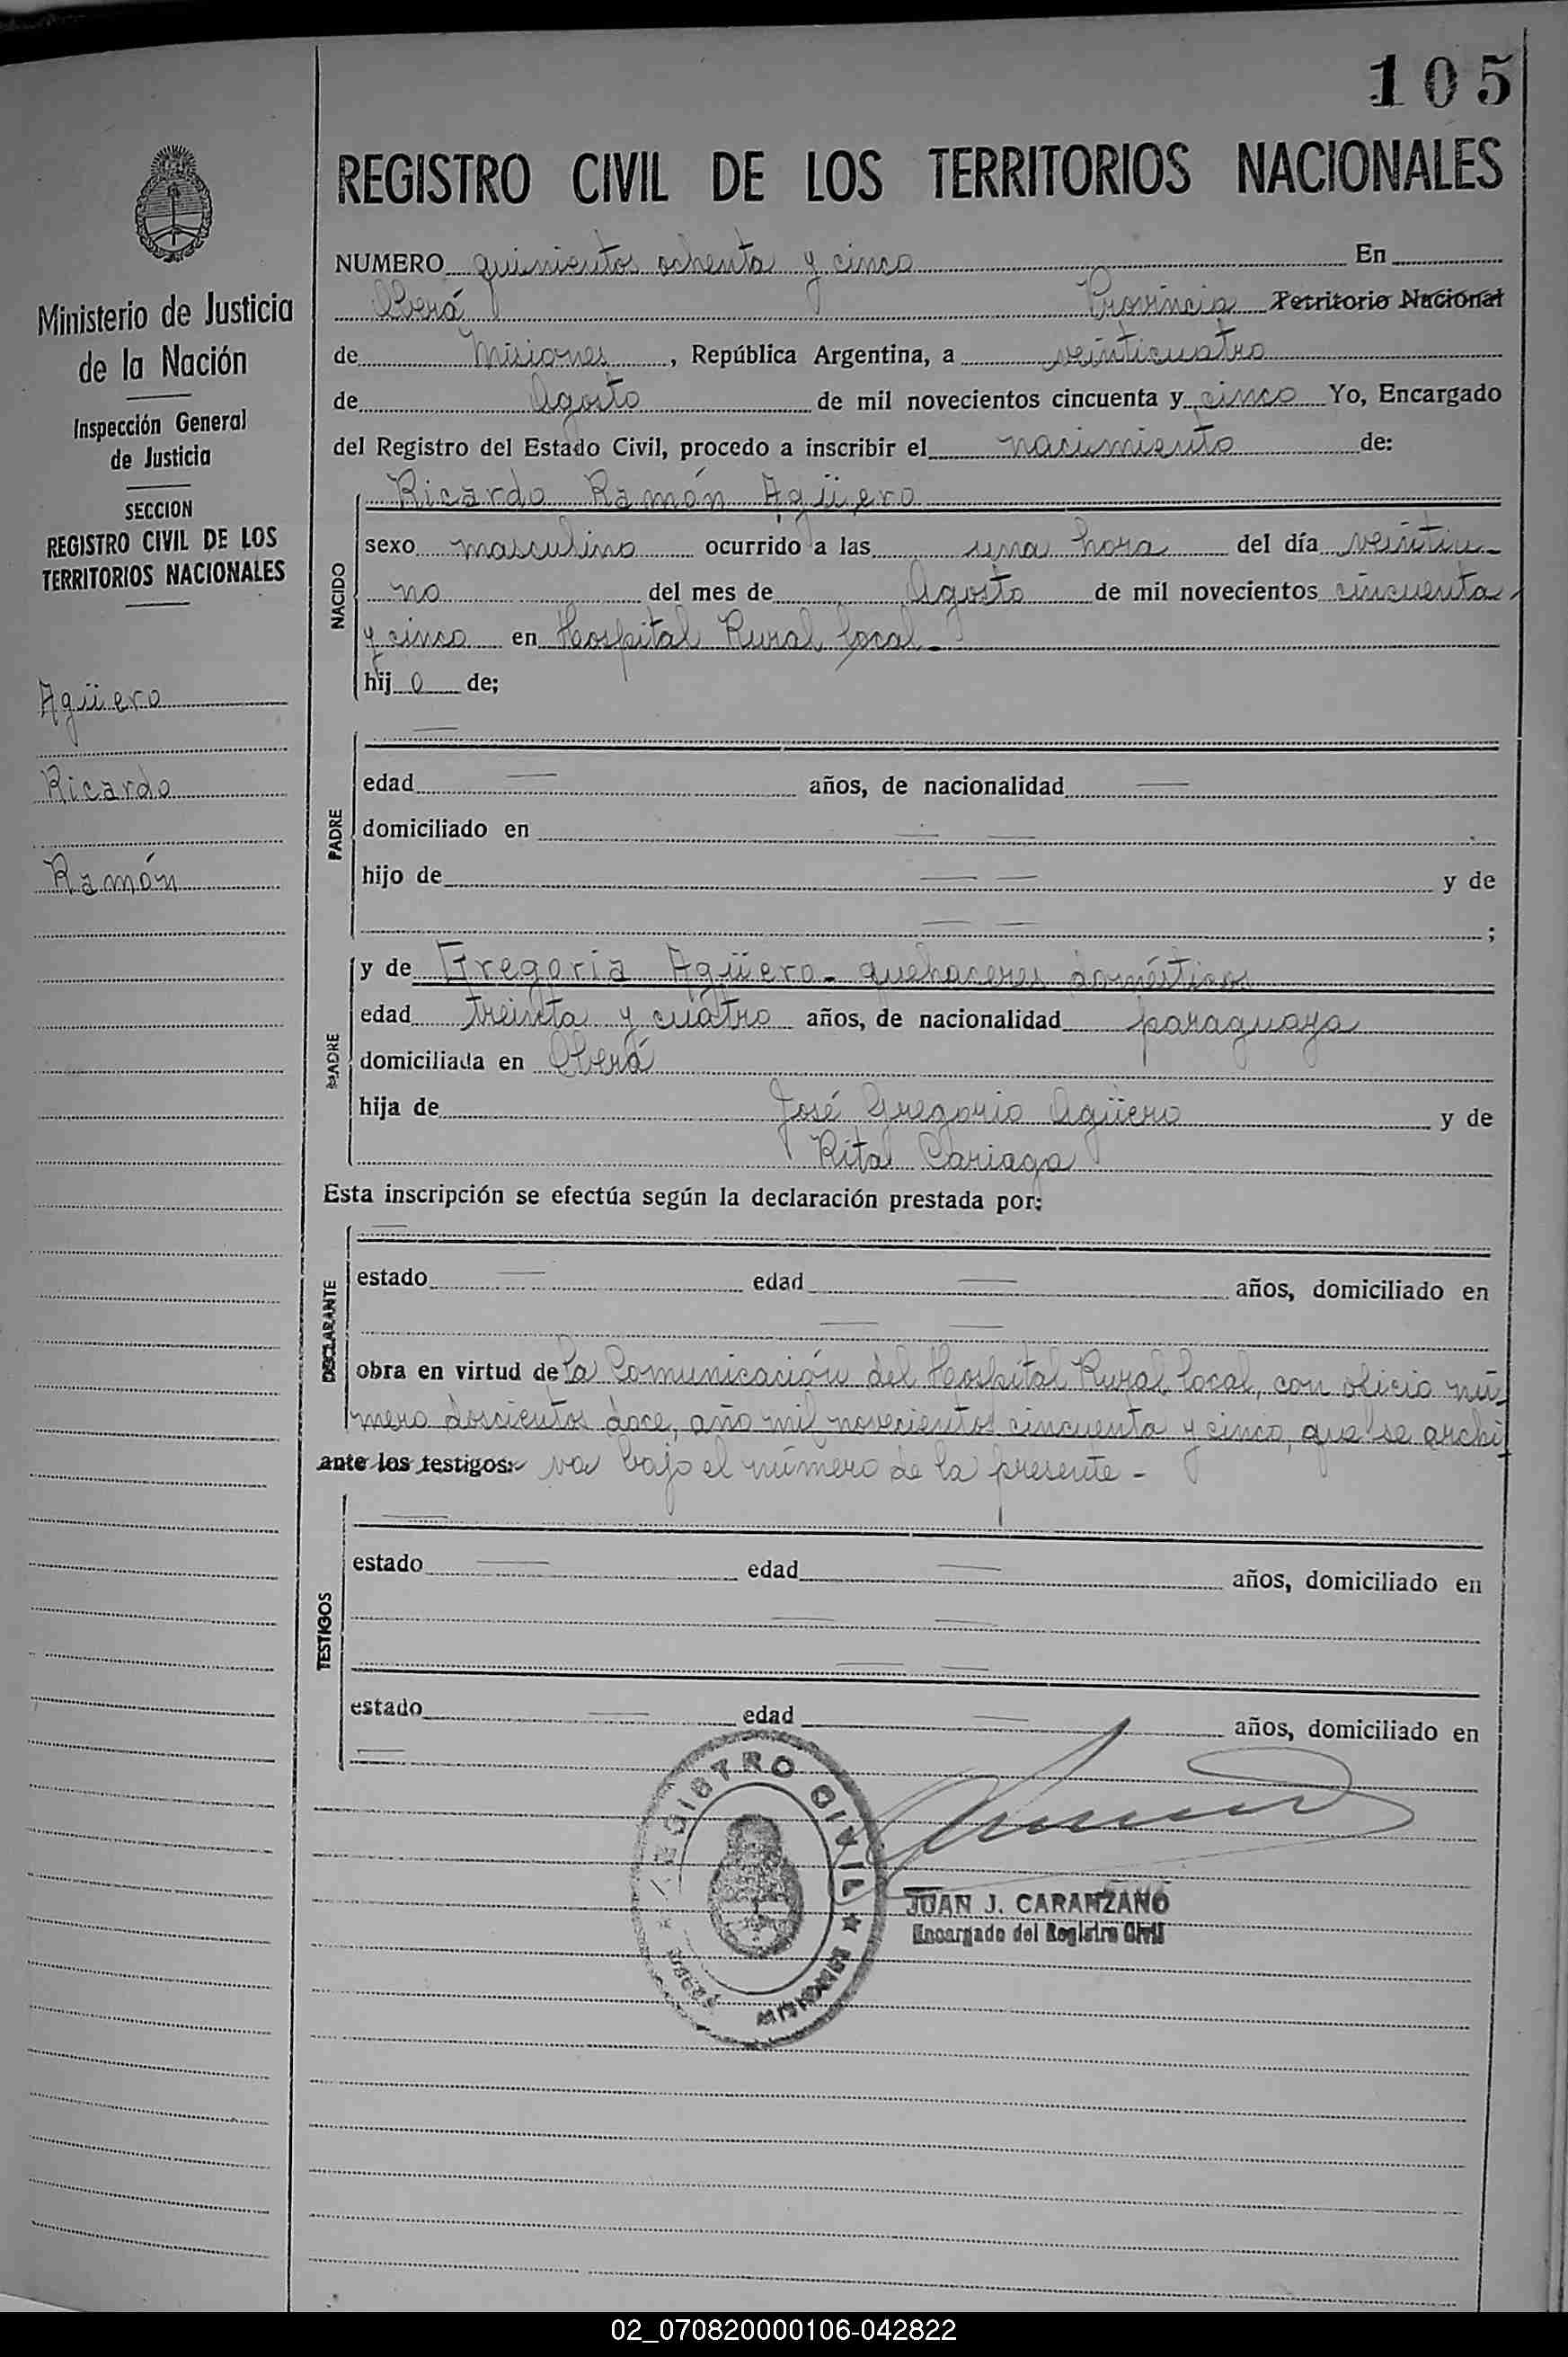 105
REGISTRO CIVIL DE LOS TERRITORIOS NACIONALES
Ministerio de Justicia
de la Nación
Inspección General
de Justicia
SECCION
REGISTRO CIVIL DE LOS
TERRITORIOS NACIONALES
Agüero
Ricardo
Ramón
NUMERO quinientos ochenta y cinco En
Oberá Provincia Territorio Nacional
de Misiones, República Argentina, a veinticuatro
de Agosto de mil novecientos cincuenta y cinco Yo, Encargado
del Registro del Estado Civil, procedo a inscribir el nacimiento de:
NACIDO
Ricardo Ramón Agüero
sexo masculino ocurrido a las una hora del día veintiu-
no del mes de Agosto de mil novecientos cincuenta
y cinco en Hospital Rural local.-
hijo de;
PADRE
edad — años, de nacionalidad —
domiciliado en — —
hijo de — — y de
— — ;
MADRE
y de Gregoria Agüero - quehaceres domésticos
edad treinta y cuatro años, de nacionalidad paraguaya
domiciliada en Oberá
hija de José Gregorio Agüero y de
Rita Cariaga
Esta inscripción se efectúa según la declaración prestada por:
DECLARANTE
—
estado — edad — años, domiciliado en
— —
obra en virtud de la Comunicación del Hospital Rural local, con oficio nú-
mero doscientos doce, año mil novecientos cincuenta y cinco, que se archi
ante los testigos: va bajo el número de la presente -
TESTIGOS
—
estado — edad — años, domiciliado en
— —
— —
estado — edad — años, domiciliado en
—
REGISTRO CIVIL ★ OBERÁ MISIONES
JUAN J. CARANZANO
Encargado del Registro Civil
02_070820000106-042822